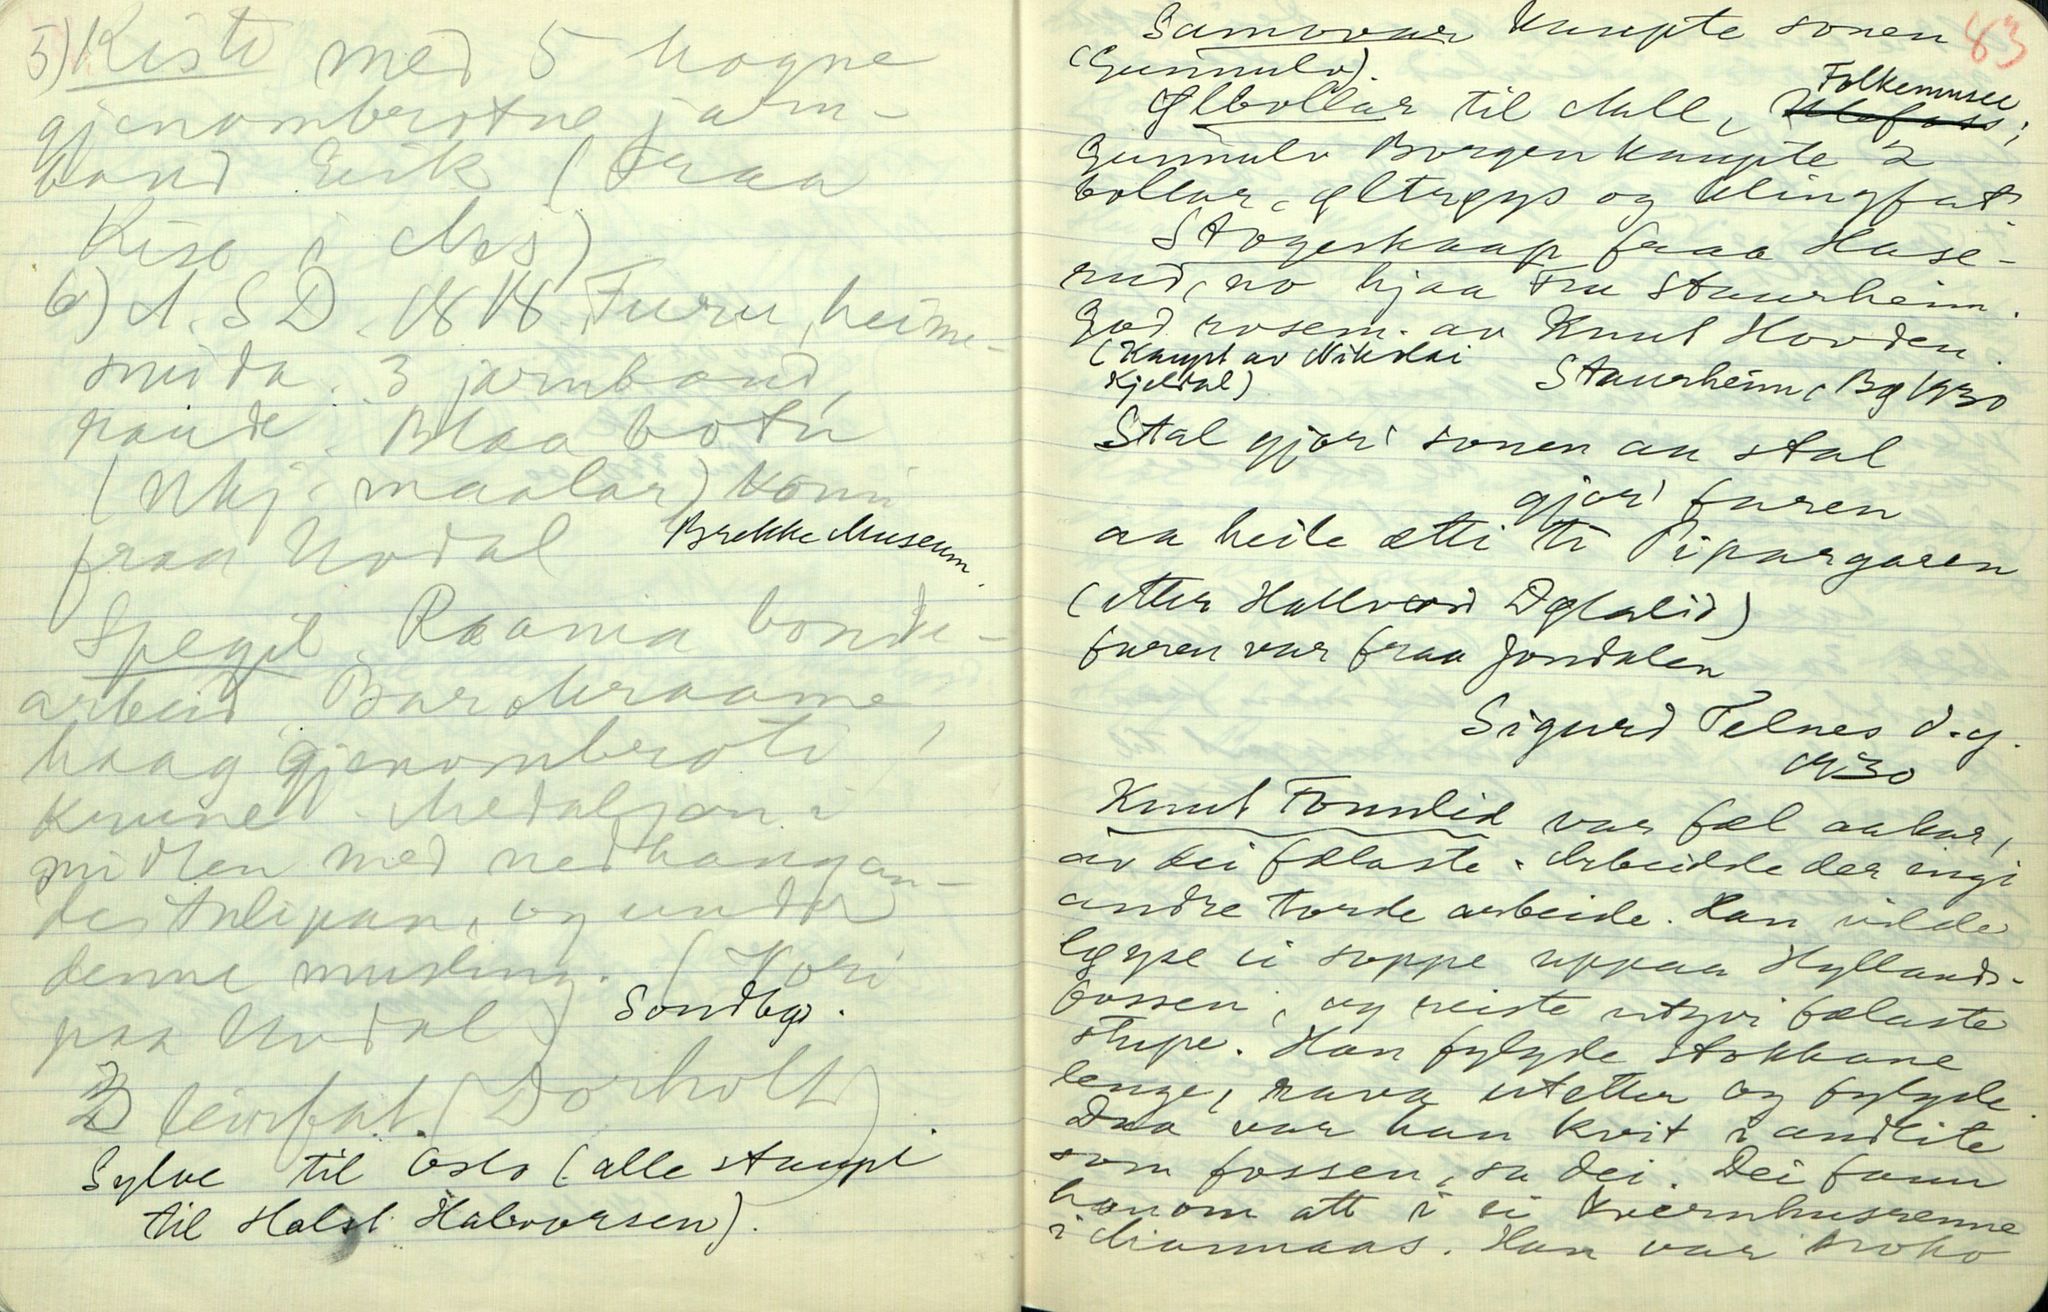 5) Kiste med 5 hogne
gjenombrotne jarn-
band Eik (Fraa
i
6) A. S D. 1818. Furu, heime-
smida. 3 jarnband,
raude. Blaa botn
(Nkj. maalar) Kom
fraa Uvdal Brekke Museum.
Spegil Raama bonde-
arbeid. Barokraame,
haag gjenombroti
krune. Medaljon i
midten med nedhangan-
des tulipan, og under
denne musling. (Kari
paa Uvdal) Sondbø.
2 leirfat. (Dorholt)
Sylve til Oslo (alle staupi
til Halst Halvorsen).
83
Samovar kaupte sonen
(Gunnulv).
Ølbollar til Mæl, Folkemusee
Ulefoss;
Gunnulv Borgen kaupte 2
bollar, øltrøys og klingfat.
Stogeskaap fraa Hase-
rud, no hjaa Fru Staurheim.
God rosem. av Knut Hovden.
(Kaupt av Nikolai
Kjeldal)
Staurheim, Bø 1930
Stal gjori sonen aa stal
gjori faren
aa heile ætti ti Pipargaren
(etter Hallvord Dølalid)
faren var fraa Jondalen
Sigurd Telnes d.y.
1930
Knut Fonnlid var fæl aakar,
av dei fælaste. Arbeidde der ingi
andre torde arbeide. Han vilde
løyse ei soppe uppaa Hyllands-
fossen, og reiste utyvi fælaste
stupe. Han fylgde stokkane
lenge, rava utetter og fylgde.
Daa var han kvit i andlite
som fossen, sa dei. Dei fann
honom att i ei kvernhusrenne
i Manmaas. Han var